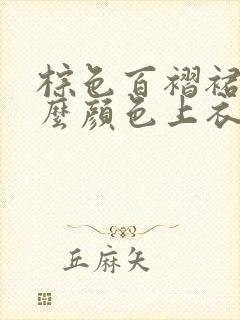 棕色百褶裙
麼顔色上衣
丘麻矢